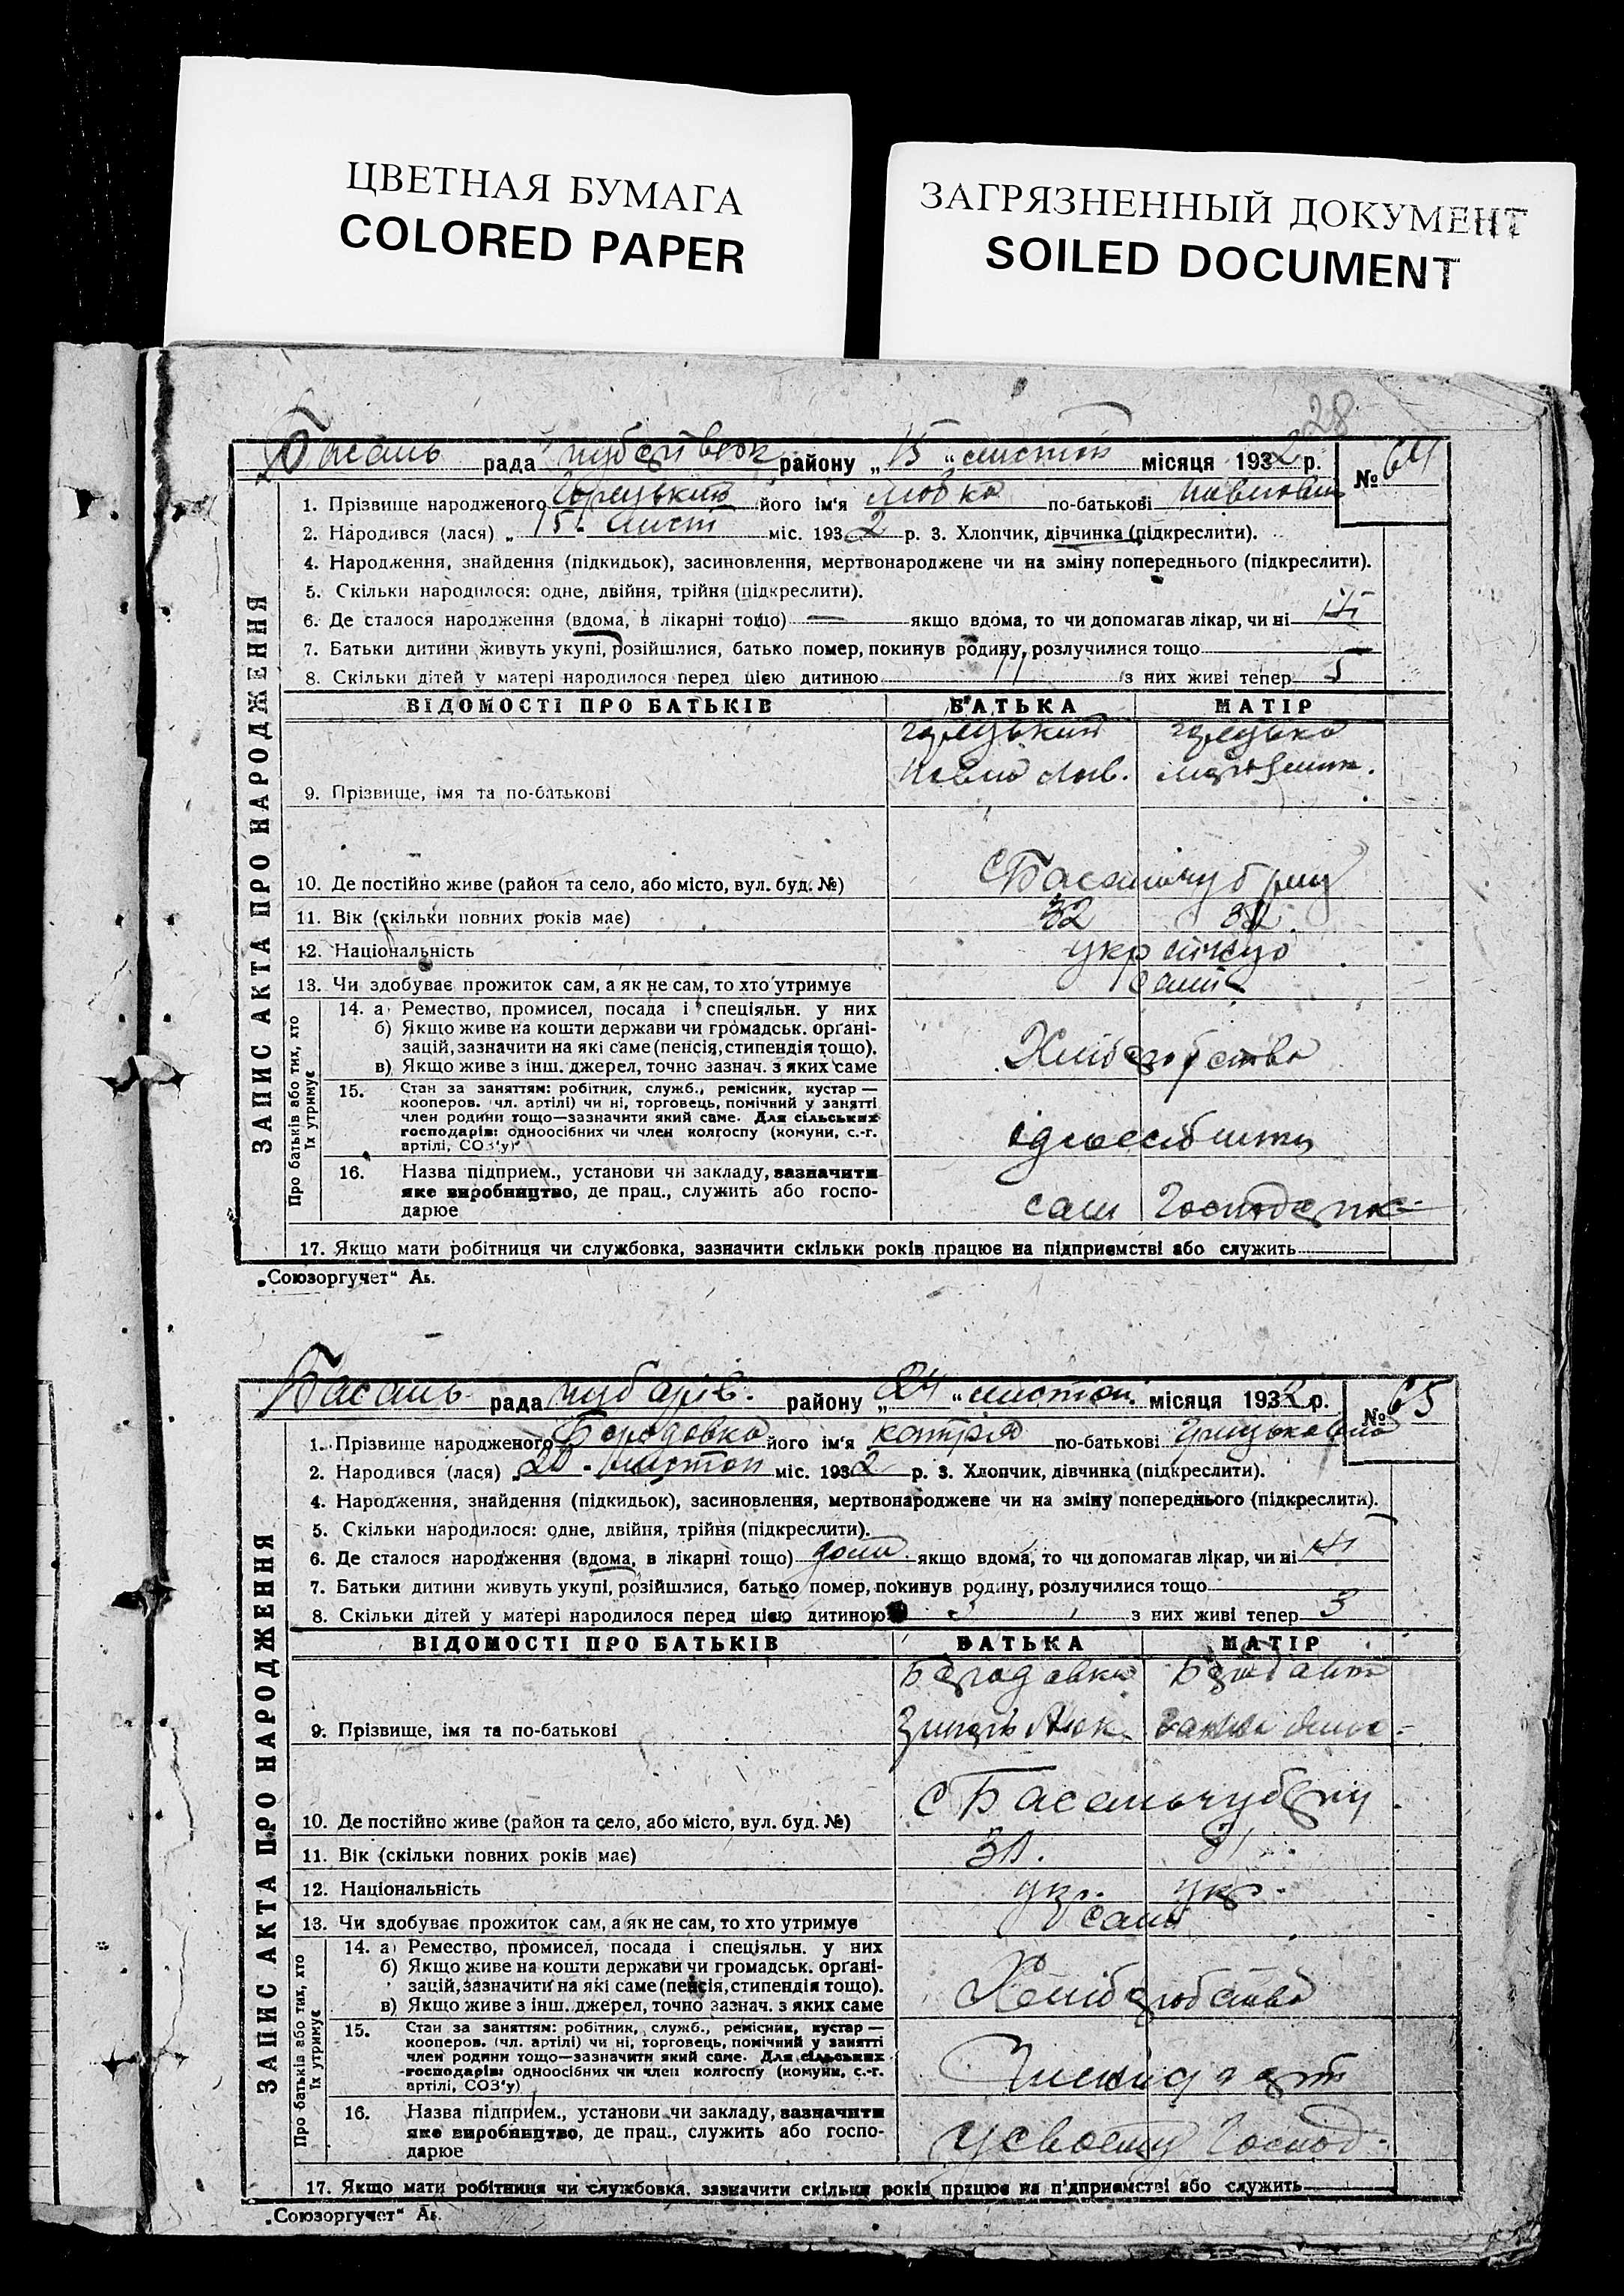 ЦВЕТНАЯ БУМАГА
COLORED PAPER
ЗАГРЯЗНЕННЫЙ ДОКУМЕНТ
SOILED DOCUMENT
28
Басань рада району „15 “ листоп місяця 1932 р. № 64
1. Прізвище народженого його ім‘я по-батькові
2. Народився (лася) „ 15 - лист міс. 1932 р. 3. Хлопчик, дівчинка (підкреслити).
4. Народження, знайдення (підкидьок), засиновлення, мертвонароджене чи на зміну попереднього (підкреслити).
5. Скільки народилося: одне, двійня, трійня (підкреслити).
6. Де сталося народження (вдома, в лікарні тощо) — якщо вдома, то чи допомагав лікар, чи ні ні
7. Батьки дитини живуть укупі, розійшлися, батько помер, покинув родину, розлучилися тощо
8. Скільки дітей у матері народилося перед цією дитиною з них живі тепер 5
ВІДОМОСТІ ПРО БАТЬКІВ БАТЬКА МАТІР
9. Прізвище, імя та по-батькові
10. Де постійно живе (район та село, або місто, вул. буд. №) с Басань
11. Вік (скільки повних років має) 32
12. Національність укр
13. Чи здобуває прожиток сам, а як не сам, то хто утримує самі
14. а) Ремество, промисел, посада і спеціяльн. у них
б) Якщо живе на кошти держави чи громадськ. орґані-
зацій, зазначити на які саме (пенсія, стипендія тощо).
в) Якщо живе з інш. джерел, точно зазнач. з яких саме
Хліборобство
15. Стан за заняттям: робітник, служб., ремісник, кустар —
кооперов. (чл. артілі) чи ні, торговець, помічний у занятті
член родини тощо—зазначити який саме. Для сільських
господарів: одноосібних чи член колгоспу (комуни, с.-г.
артілі, СОЗ‘у)
16. Назва підприєм., установи чи закладу, зазначити
яке виробництво, де прац., служить або госпо-
дарює
сам
17. Якщо мати робітниця чи службовка, зазначити скільки років працює на підприємстві або служить
ЗАПИС АКТА ПРО НАРОДЖЕННЯ
Про батьків або тих, хто
їх утримує
„Союзоргучет“
Басань рада району „ “ листоп. місяця 1932 р. № 65
1. Прізвище народженого Бородавка його ім‘я катря по-батькові Грицьковна
2. Народився (лася) „ 20 - листоп міс. 1932 р. 3. Хлопчик, дівчинка (підкреслити).
4. Народження, знайдення (підкидьок), засиновлення, мертвонароджене чи на зміну попереднього (підкреслити).
5. Скільки народилося: одне, двійня, трійня (підкреслити).
6. Де сталося народження (вдома, в лікарні тощо) дома якщо вдома, то чи допомагав лікар, чи ні ні
7. Батьки дитини живуть укупі, розійшлися, батько помер, покинув родину, розлучилися тощо
8. Скільки дітей у матері народилося перед цією дитиною 3 з них живі тепер 3
ВІДОМОСТІ ПРО БАТЬКІВ БАТЬКА МАТІР
Бородавка
9. Прізвище, імя та по-батькові
10. Де постійно живе (район та село, або місто, вул. буд. №) с Басань
11. Вік (скільки повних років має) 31
12. Національність укр. укр.
13. Чи здобуває прожиток сам, а як не сам, то хто утримує самі
14. а) Ремество, промисел, посада і спеціяльн. у них
б) Якщо живе на кошти держави чи громадськ. орґані-
зацій, зазначити на які саме (пенсія, стипендія тощо).
в) Якщо живе з інш. джерел, точно зазнач. з яких саме
Хліборобство
15. Стан за заняттям: робітник, служб., ремісник, кустар —
кооперов. (чл. артілі) чи ні, торговець, помічний у занятті
член родини тощо—зазначити який саме. Для сільських
господарів: одноосібних чи член колгоспу (комуни, с.-г.
артілі, СОЗ‘у)
16. Назва підприєм., установи чи закладу, зазначити
яке виробництво, де прац., служить або госпо-
дарює
у своєму Господ.
17. Якщо мати робітниця чи службовка, зазначити скільки років працює на підприємстві або служить
ЗАПИС АКТА ПРО НАРОДЖЕННЯ
Про батьків або тих, хто
їх утримує
„Союзоргучет“